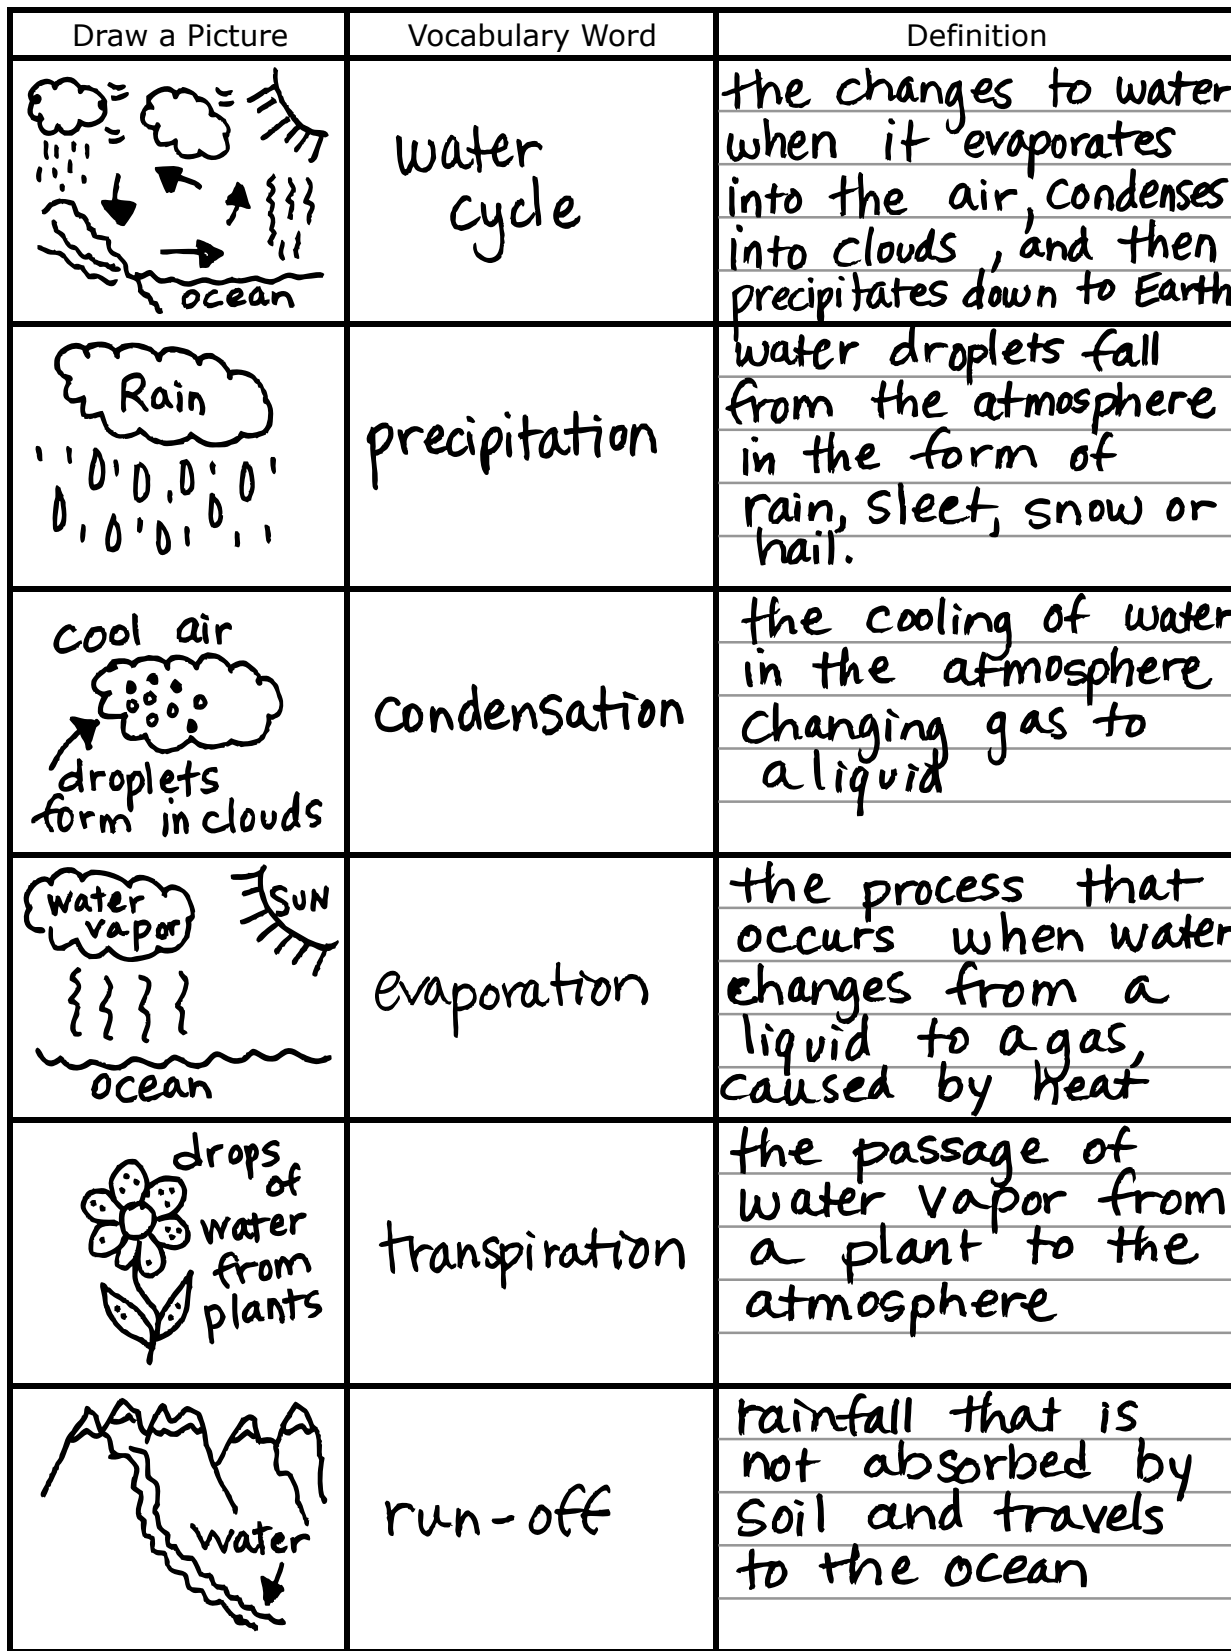 Draw a Picture
Vocabulary Word
Definition
ocean
water
cycle
the changes to water
when it evaporates
into the air, condenses
into clouds, and then
precipitates down to Earth
Rain
precipitation
water droplets fall
from the atmosphere
in the form of
rain, sleet, snow or
hail.
cool air
droplets
form in clouds
condensation
the cooling of water
in the atmosphere
changing gas to
a liquid
water
vapor
SUN
ocean
evaporation
the process that
occurs when water
changes from a
liquid to a gas,
caused by heat
drops
of
water
from
plants
transpiration
the passage of
water vapor from
a plant to the
atmosphere
water
run-off
rainfall that is
not absorbed by
soil and travels
to the ocean